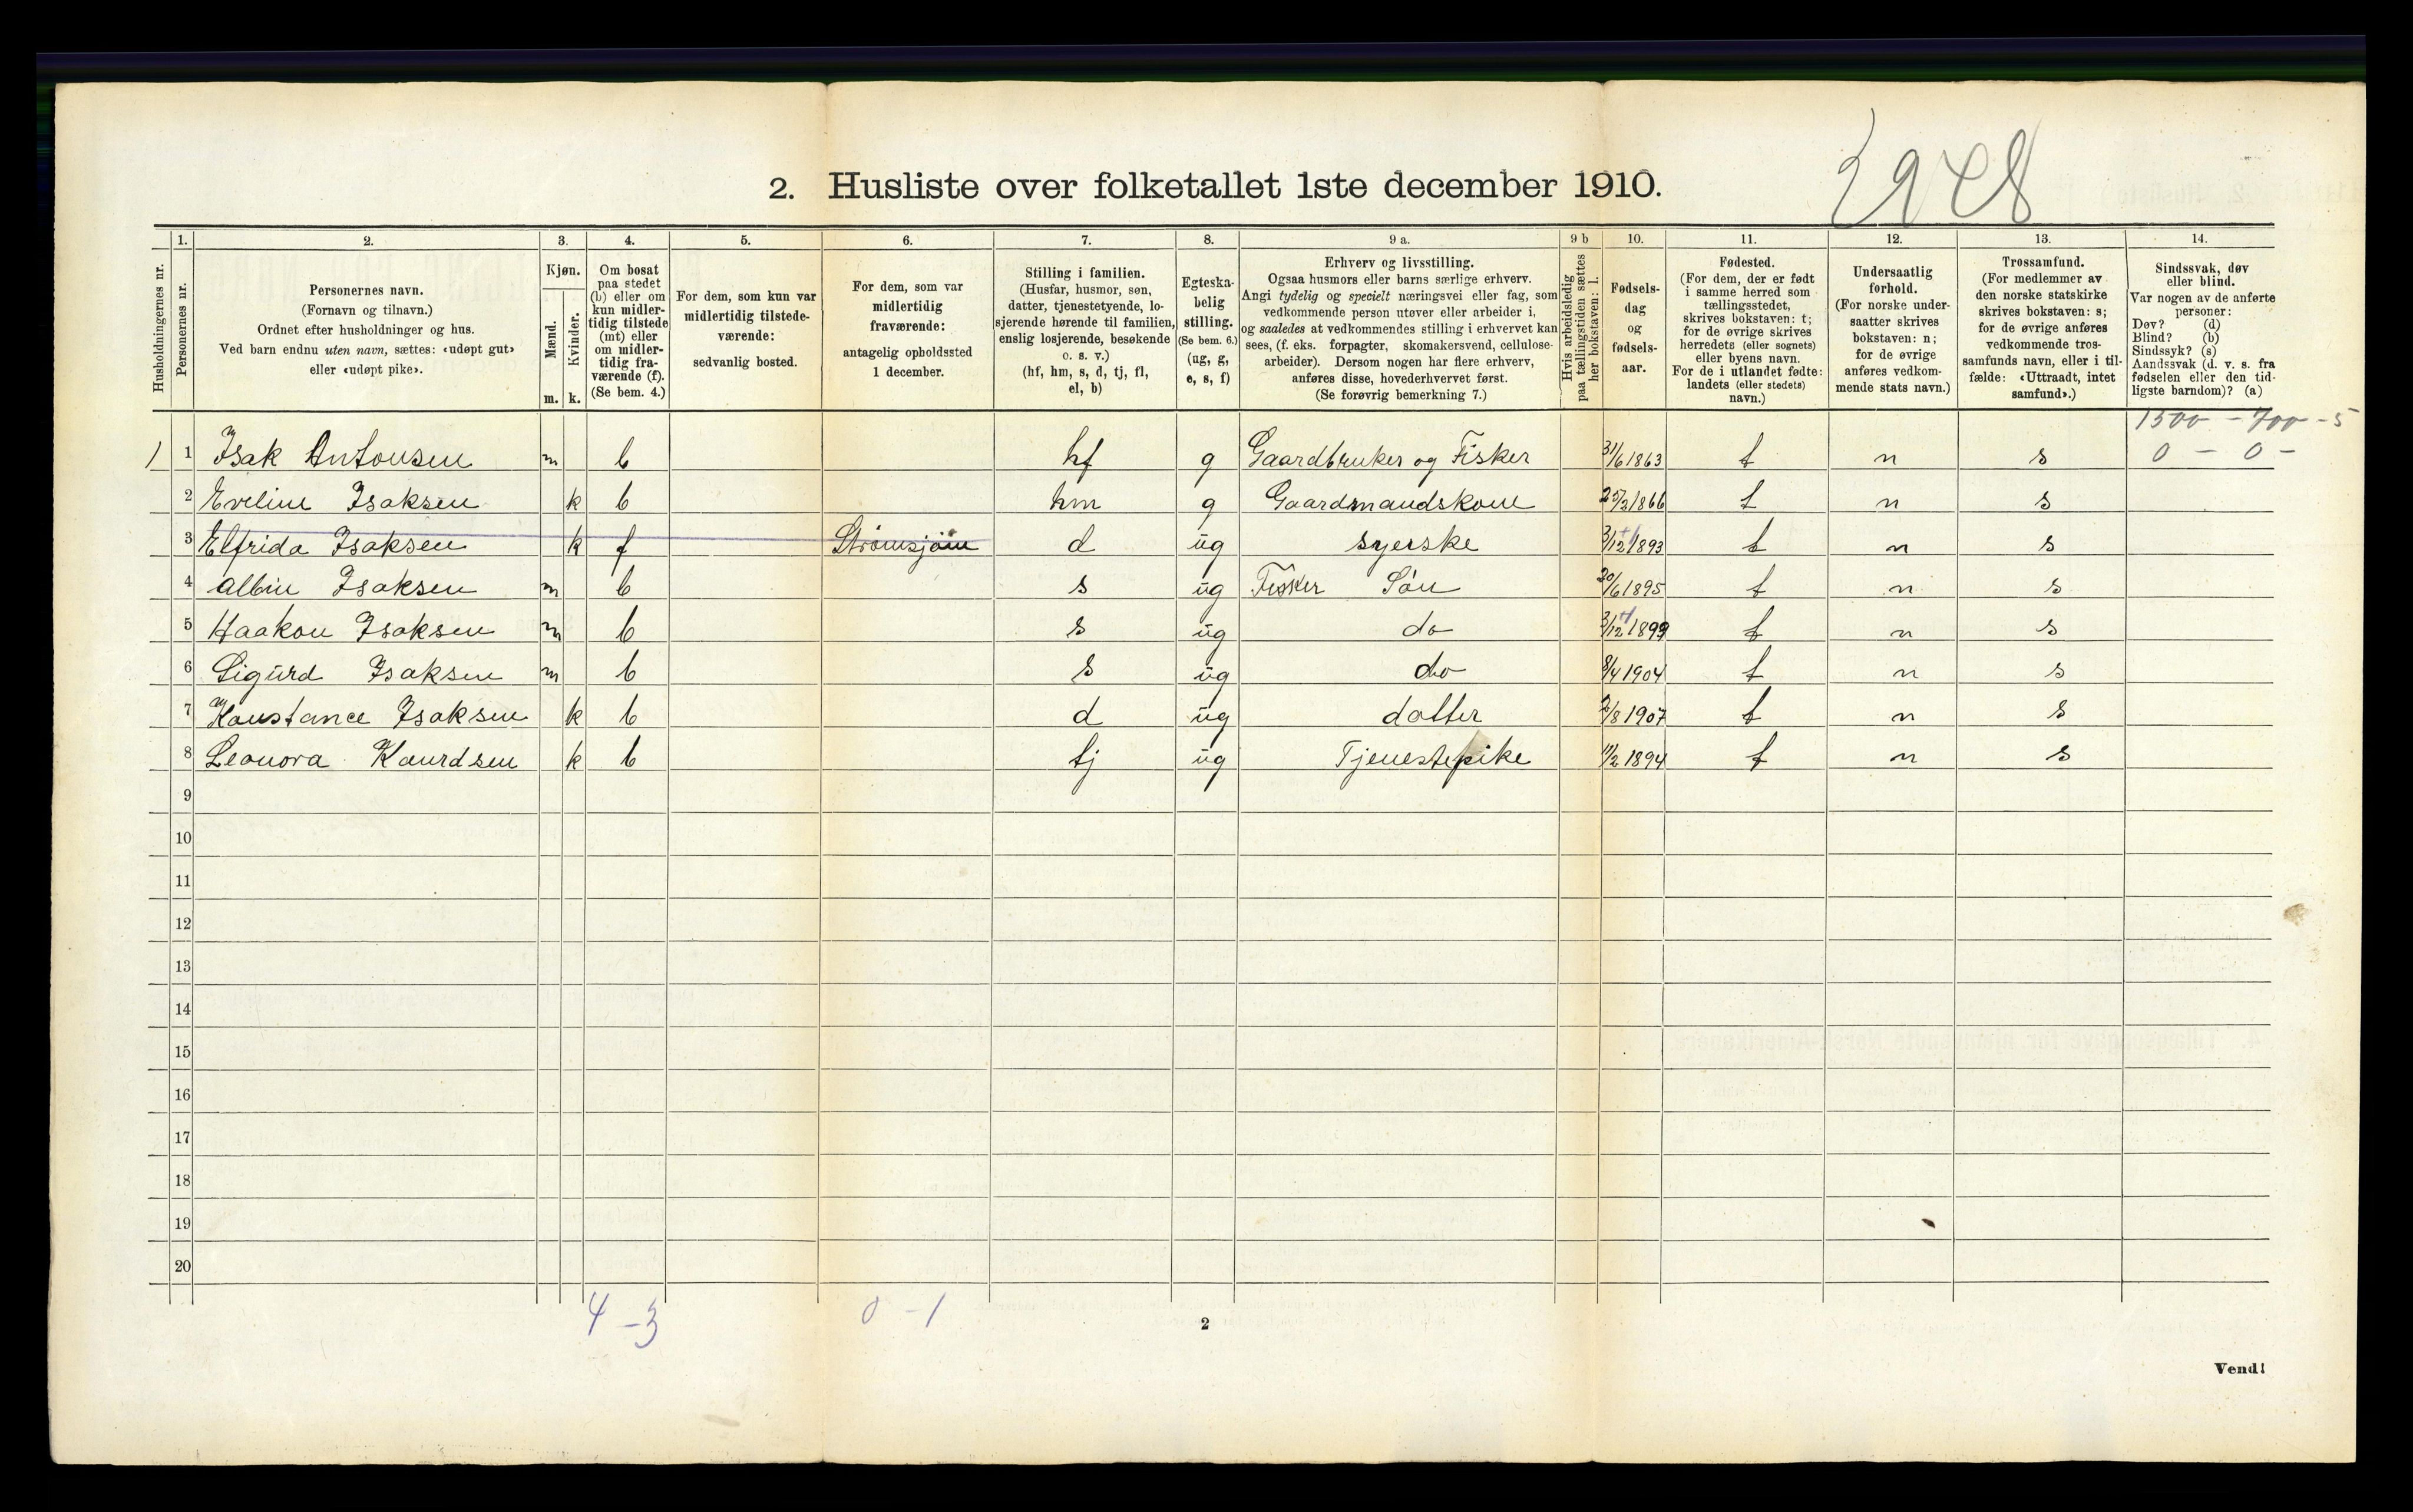 2. Husliste over folketallet 1ste december 1910.
1. 2. 3. 4. 5. 6. 7. 8. 9 a. 9 b 10. 11. 12. 13. 14.
Husholdningernes nr.
Personernes nr.
Personernes navn.
(Fornavn og tilnavn.)
Ordnet efter husholdninger og hus.
Ved barn endnu uten navn, sættes: «udøpt gut»
eller «udøpt pike».
Kjøn.
Mænd.
Kvinder.
m. k.
Om bosat
paa stedet
(b) eller om
kun midler-
tidig tilstede
(mt) eller
om midler-
tidig fra-
værende (f).
(Se bem. 4.)
For dem, som kun var
midlertidig tilstede-
værende:
sedvanlig bosted.
For dem, som var
midlertidig
fraværende:
antagelig opholdssted
1 december.
Stilling i familien.
(Husfar, husmor, søn,
datter, tjenestetyende, lo-
sjerende hørende til familien,
enslig losjerende, besøkende
o. s. v.)
(hf, hm, s, d, tj, fl,
el, b)
Egteska-
belig
stilling.
(Se bem. 6.)
(ug, g,
e, s, f)
Erhverv og livsstilling.
Ogsaa husmors eller barns særlige erhverv.
Angi tydelig og specielt næringsvei eller fag, som
vedkommende person utøver eller arbeider i,
og saaledes at vedkommendes stilling i erhvervet kan
sees, (f. eks. forpagter, skomakersvend, cellulose-
arbeider). Dersom nogen har flere erhverv,
anføres disse, hovederhvervet først.
(Se forøvrig bemerkning 7.)
Hvis arbeidsledig
paa tællingstiden sættes
her bokstaven: l.
Fødsels-
dag
og
fødsels-
aar.
Fødested.
(For dem, der er født
i samme herred som
tællingsstedet,
skrives bokstaven: t;
for de øvrige skrives
herredets (eller sognets)
eller byens navn.
For de i utlandet fødte:
landets (eller stedets)
navn.)
Undersaatlig
forhold.
(For norske under-
saatter skrives
bokstaven: n;
for de øvrige
anføres vedkom-
mende stats navn.)
Trossamfund.
(For medlemmer av
den norske statskirke
skrives bokstaven: s;
for de øvrige anføres
vedkommende tros-
samfunds navn, eller i til-
fælde: «Uttraadt, intet
samfund».)
Sindssvak, døv
eller blind.
Var nogen av de anførte
personer:
Døv? (d)
Blind? (b)
Sindssyk? (s)
Aandssvak (d. v. s. fra
fødselen eller den tid-
ligste barndom)? (a)
1500 - 700 - 5
1 Isak Antonsen m b hf g Gaardbruker og Fisker 31/6 1863 t n s 0 - 0 -
2 Eveline Isaksen k b hm g Gaardmandskone 1866 t n s
3 Elfrida Isaksen k f d ug syerske 3/12 1893 t n s
4 Albin Isaksen m b s ug Fisker Søn 20/6 1895 t n s
5 Haakon Isaksen m b s ug do 3/12 1899 t n s
6 Sigurd Isaksen m b s ug do 8/4 1904 t n s
7 Konstance Isaksen k b d ug datter /8 1907 t n s
8 Leonora k b tj ug Tjenestepike 11/2 1894 t n s
9
10
11
12
13
14
15
16
17
18
19
20
4 - 3 0 - 1
2
Vend!